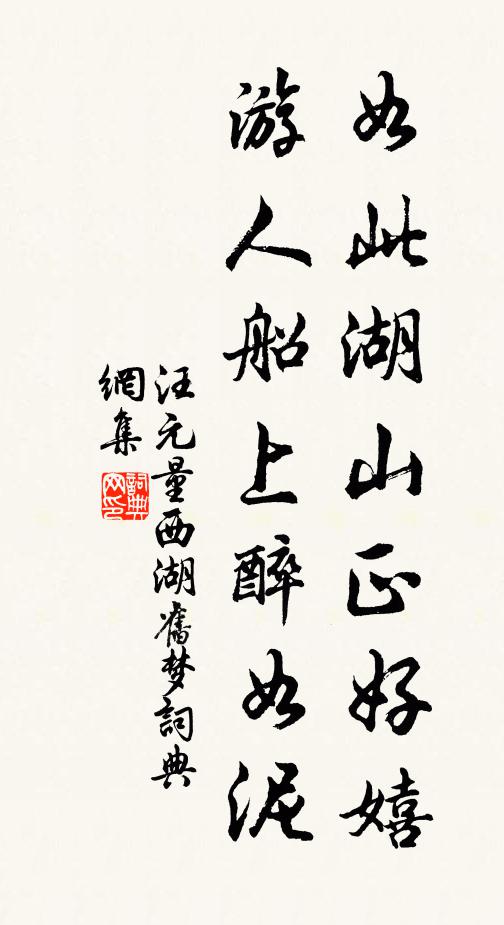 如此湖山正好嬉
游人船上醉如泥
汪元量西湖舊梦詞典
網集
詞典网印